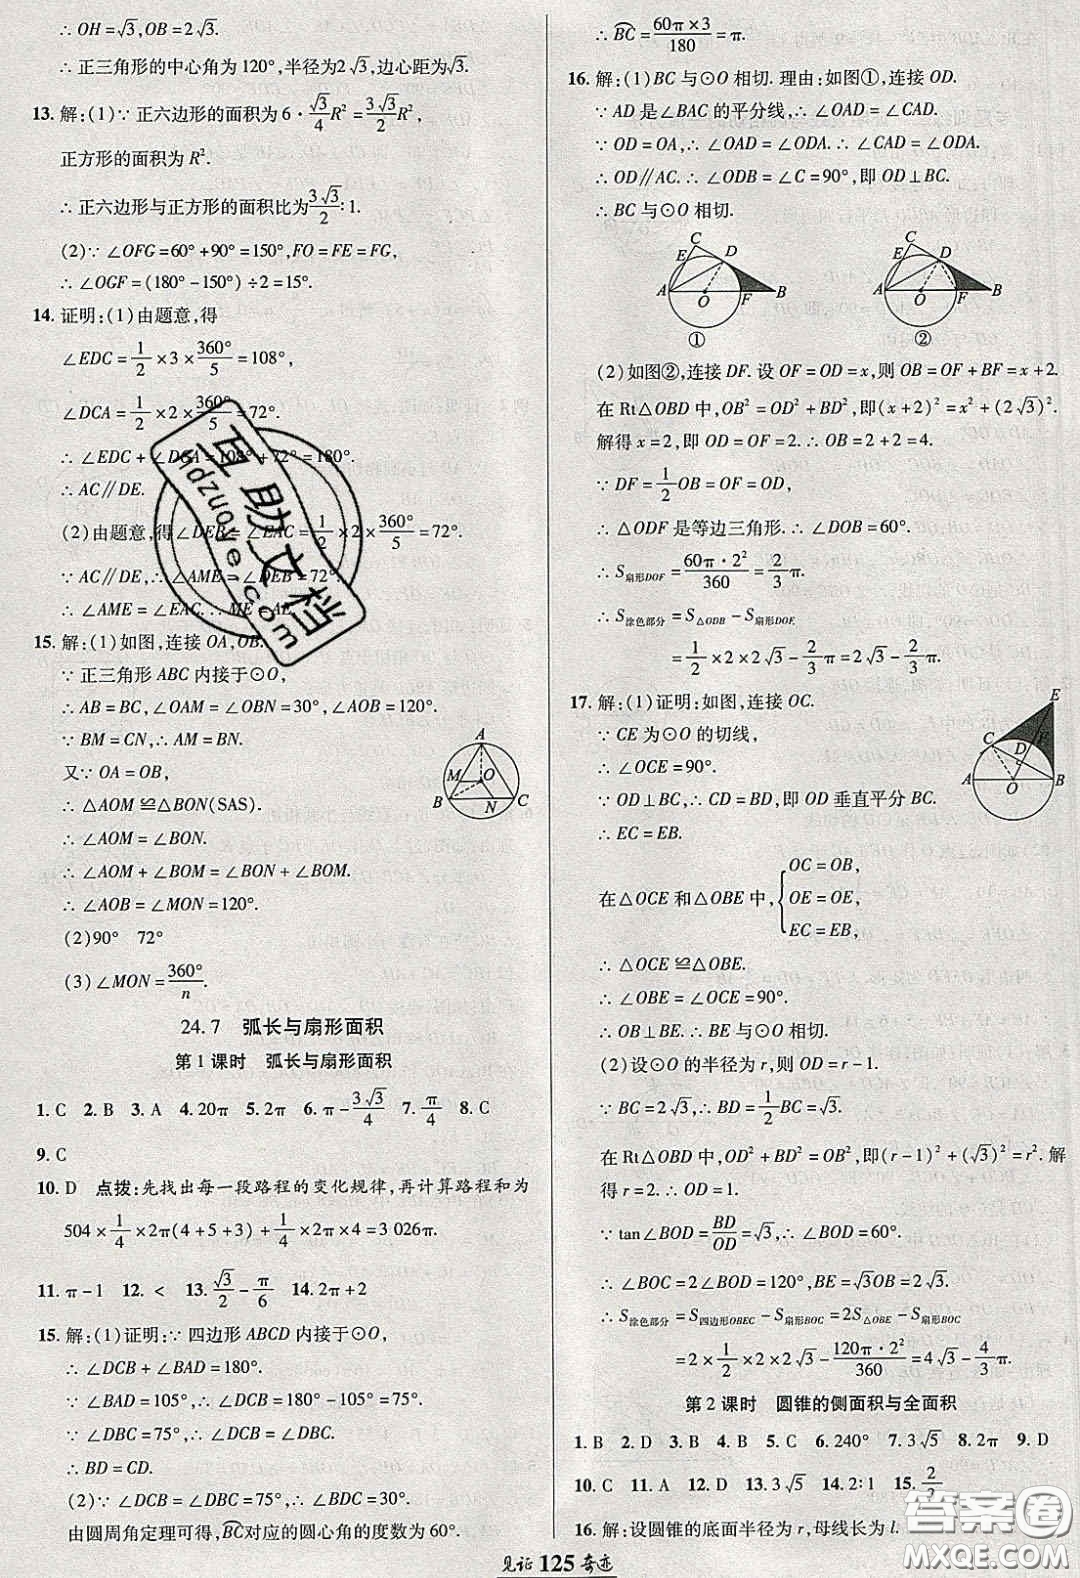 ∴ OH=√3,OB=2√3.
∴ 正三角形的中心角为120°,半径为2√3,边心距为√3.
13. 解:(1)∵ 正六边形的面积为6·√3/4 R²=3√3/2 R²,
正方形的面积为R².
∴ 正六边形与正方形的面积比为3√3/2∶1.
(2)∵ ∠OFG=60°+90°=150°,FO=FE=FG,
∴ ∠OGF=(180°-150°)÷2=15°.
14. 证明:(1)由题意,得
∠EDC=1/2×3×360°/5=108°,
∠DCA=1/2×2×360°/5=72°.
∴ ∠EDC+∠DCA=108°+72°=180°.
∴ AC∥DE.
(2)由题意,得∠DEB=∠EAC=1/2×2×360°/5=72°.
∵ AC∥DE,∴ ∠AME=∠DEB=72°.
∴ ∠AME=∠EAC.∴ ME=AE.
15. 解:(1)如图,连接OA,OB.
∵ 正三角形ABC内接于⊙O,
∴ AB=BC,∠OAM=∠OBN=30°,∠AOB=120°.
∵ BM=CN,∴ AM=BN.
又∵ OA=OB,
∴ △AOM≌△BON(SAS).
∴ ∠AOM=∠BON.
∴ ∠AOM+∠BOM=∠BON+∠BOM.
∴ ∠AOB=∠MON=120°.
A
M
O
B
N
C
(2)90° 72°
(3)∠MON=360°/n.
24.7 弧长与扇形面积
第1课时 弧长与扇形面积
1. C 2. B 3. A 4. 20π 5. 2π 6. π-3√3/4 7. π/4 8. C
9. C
10. D 点拨:先找出每一段路程的变化规律,再计算路程和为
504×1/4×2π(4+5+3)+1/4×2π×4=3 026π.
11. π-1 12. < 13. √3/2-π/6 14. 2π+2
15. 解:(1)证明:∵ 四边形ABCD内接于⊙O,
∴ ∠DCB+∠BAD=180°.
∵ ∠BAD=105°,∴ ∠DCB=180°-105°=75°.
∵ ∠DBC=75°,∴ ∠DCB=∠DBC.
∴ BD=CD.
(2)∵ ∠DCB=∠DBC=75°,∴ ∠BDC=30°.
由圆周角定理可得,BC对应的圆心角的度数为60°.
∴ BC=60π×3/180=π.
16. 解:(1)BC与⊙O相切. 理由:如图①,连接OD.
∵ AD是∠BAC的平分线,∴ ∠OAD=∠CAD.
∵ OD=OA,∴ ∠OAD=∠ODA.∴ ∠CAD=∠ODA.
∴ OD∥AC.∴ ∠ODB=∠C=90°,即OD⊥BC.
∴ BC与⊙O相切.
C
E
D
A
O
F
B
①
C
E
D
A
O
F
B
②
(2)如图②,连接DF. 设OF=OD=x,则OB=OF+BF=x+2.
在Rt△OBD中,OB²=OD²+BD²,即(x+2)²=x²+(2√3)².
解得x=2,即OD=OF=2.∴ OB=2+2=4.
∵ DF=1/2OB=OF=OD,
∴ △ODF是等边三角形.∴ ∠DOB=60°.
∴ S扇形DOF=60π·2²/360=2/3π.
∴ S涂色部分=S△ODB-S扇形DOF
=1/2×2×2√3-2/3π=2√3-2/3π.
17. 解:(1)证明:如图,连接OC.
∵ CE为⊙O的切线,
∴ ∠OCE=90°.
∵ OD⊥BC,∴ CD=BD,即OD垂直平分BC.
∴ EC=EB.
E
C
D
F
A
O
B
在△OCE和△OBE中,{OC=OB,
OE=OE,
EC=EB,
∴ △OCE≌△OBE.
∴ ∠OBE=∠OCE=90°.
∴ OB⊥BE.∴ BE与⊙O相切.
(2)设⊙O的半径为r,则OD=r-1.
∵ BC=2√3,∴ BD=1/2BC=√3.
在Rt△OBD中,OD²+BD²=OB²,即(r-1)²+(√3)²=r².解
得r=2.∴ OD=1.
∵ tan∠BOD=BD/OD=√3,∴ ∠BOD=60°.
∴ ∠BOC=2∠BOD=120°,BE=√3OB=2√3.
∴ S涂色部分=S四边形OBEC-S扇形BOC=2S△OBE-S扇形BOC
=2×1/2×2×2√3-120π·2²/360=4√3-4/3π.
第2课时 圆锥的侧面积与全面积
1. B 2. D 3. B 4. B 5. 2 6. 240° 7. 3√5 8. 2π 9. D
10. C 11. A 12. D 13. 3√5 14. 2∶1 15.
16. 解:设圆锥的底面半径为r,母线长为l.
见证125奇迹
互助文档
hdzuoye.com
答案圈
MXQE.COM